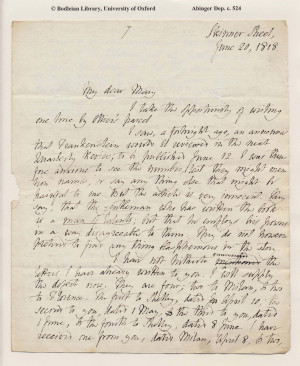 © Bodleian Library, University of Oxford Abinger Dep. c. 524
7
Skinner Street,
June 20, 1818.
My dear Mary
I take the opportunity of writing
one line by Ollier's parcel
I saw, a fortnight ago, an announce
that Frankenstein would be reviewed in the next
Quarterly Review, to be published June 12. I was there-
fore anxious to see the number, lest they might men-
tion names, or say any thing else that might be
painful to me. But the article is very innocent. They
say that the gentleman who has written the book
is a man of talents, but that he employs his powers
in a way disagreeable to them. They do not however
pretend to find any thing blasphemous in the story.
I have not hitherto the
letters I have already written to you. I will supply
the defect now. They are four; two to Milan, & two
to Florence. The first to Shelley, dated April 10, the
second to you, dated 1 May, the third to you, dated
1 June, & the fourth to Shelley, dated 8 June. I have
received one from you, dated Milan, April 8, & two,